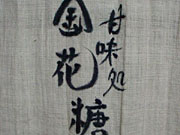 甘味処
金花糖